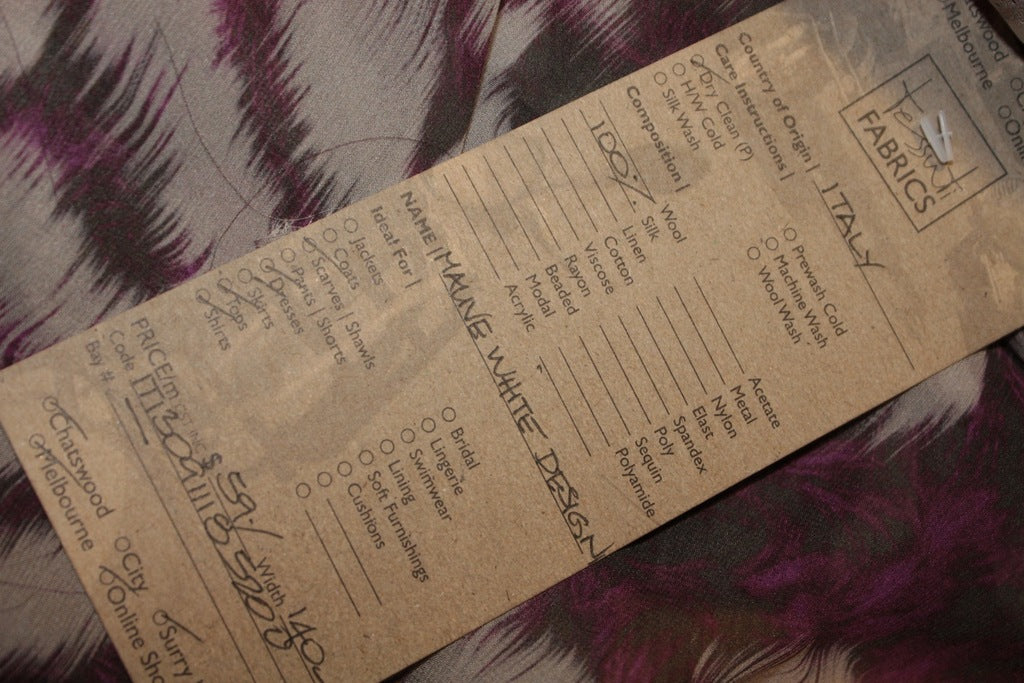 Tessuti
FABRICS
Country of Origin | ITALY
Care Instructions |
Dry Clean (P)
H/W Cold
Silk Wash
Prewash Cold
Machine Wash
Wool Wash
Composition |
Wool
100% Silk
Linen
Cotton
Viscose
Rayon
Beaded
Modal
Acrylic
Acetate
Metal
Nylon
Elast
Spandex
Poly
Sequin
Polyamide
NAME | MAUVE WHITE DESIGN
Ideal For |
Jackets
Coats
Scarves | Shawls
Pants | Shorts
Dresses
Skirts
Tops
Shirts
Bridal
Lingerie
Swimwear
Lining
Soft Furnishings
Cushions
PRICE/m $ 59/ Width 140
Code
Bay #
Chatswood
Melbourne
City
Online Sho
Surry
atswood
Melbourne
Onli